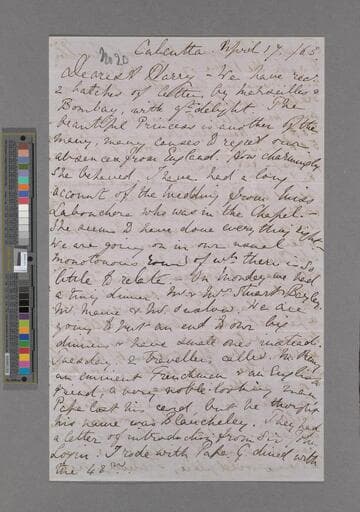 No 20
Calcutta. April 17. /63
Dearest Harry - We have recd
2 batches of letters by Marseilles &
Bombay, with gt delight. The
beautiful Princess is another of the
many, many causes I regret our
absence from England. How charmingly
She behaved, I have had a long
account of the wedding from Miss
Labouchere who was in the Chapel. -
She seems to have done everything right -
We are going on in our usual
monotonous round of wh there is so
little to relate - On Monday we had
a tiny dinner. Mr & Mrs Stuart
We are
going to put an end to our big
dinners & have small ones instead.
Tuesday 2 travellers called.
an eminent Frenchman & an English
friend, a very noble looking man
Papa lost his card but he thought
his name was They had
a letter of introduction from Sir
Login: I rode with Papa. G. dined with
the 48th